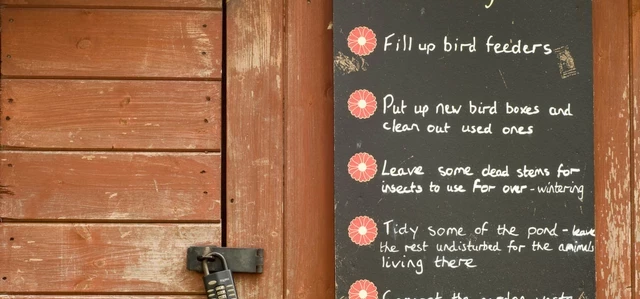 Fill up bird feeders
Put up new bird boxes and
clean out used ones
Leave some dead stems for
insects to use for over-wintering
Tidy some of the pond - leave
the rest undisturbed for the animals
living there